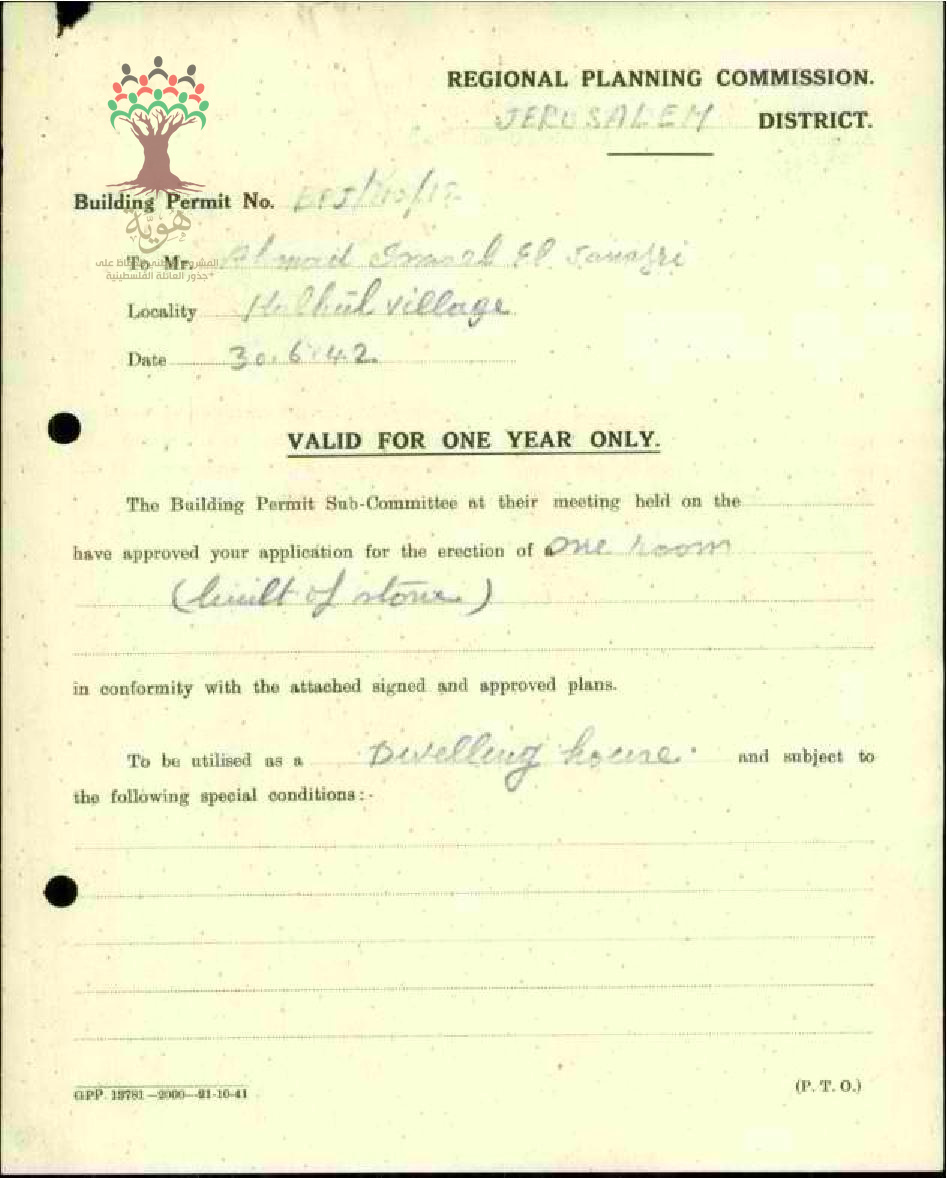 REGIONAL PLANNING COMMISSION.
JERUSALEM DISTRICT.
Building Permit No.
هويّة
المشروع الوطني للحفاظ على
جذور العائلة الفلسطينية
To Mr. Ahmad El
Locality Halhul village
Date 30.6.42.
VALID FOR ONE YEAR ONLY.
The Building Permit Sub-Committee at their meeting held on the
have approved your application for the erection of a one room
(built of stone)
in conformity with the attached signed and approved plans.
To be utilised as a Dwelling house. and subject to
the following special conditions:-
GPP. 13781—2000—21-10-41
(P. T. O.)